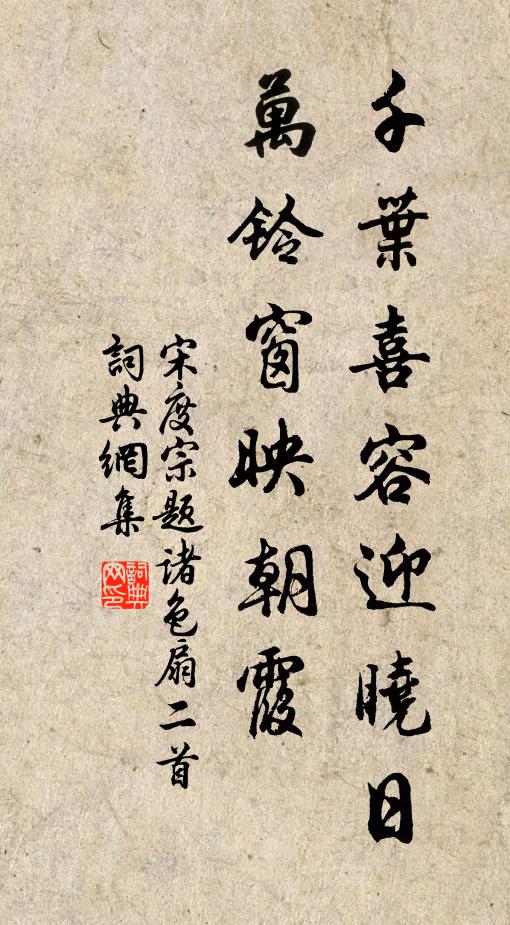 千葉喜容迎曉日
萬鈴窗映朝霞
宋度宗题诸色扇二首
詞典網集
詞典网印